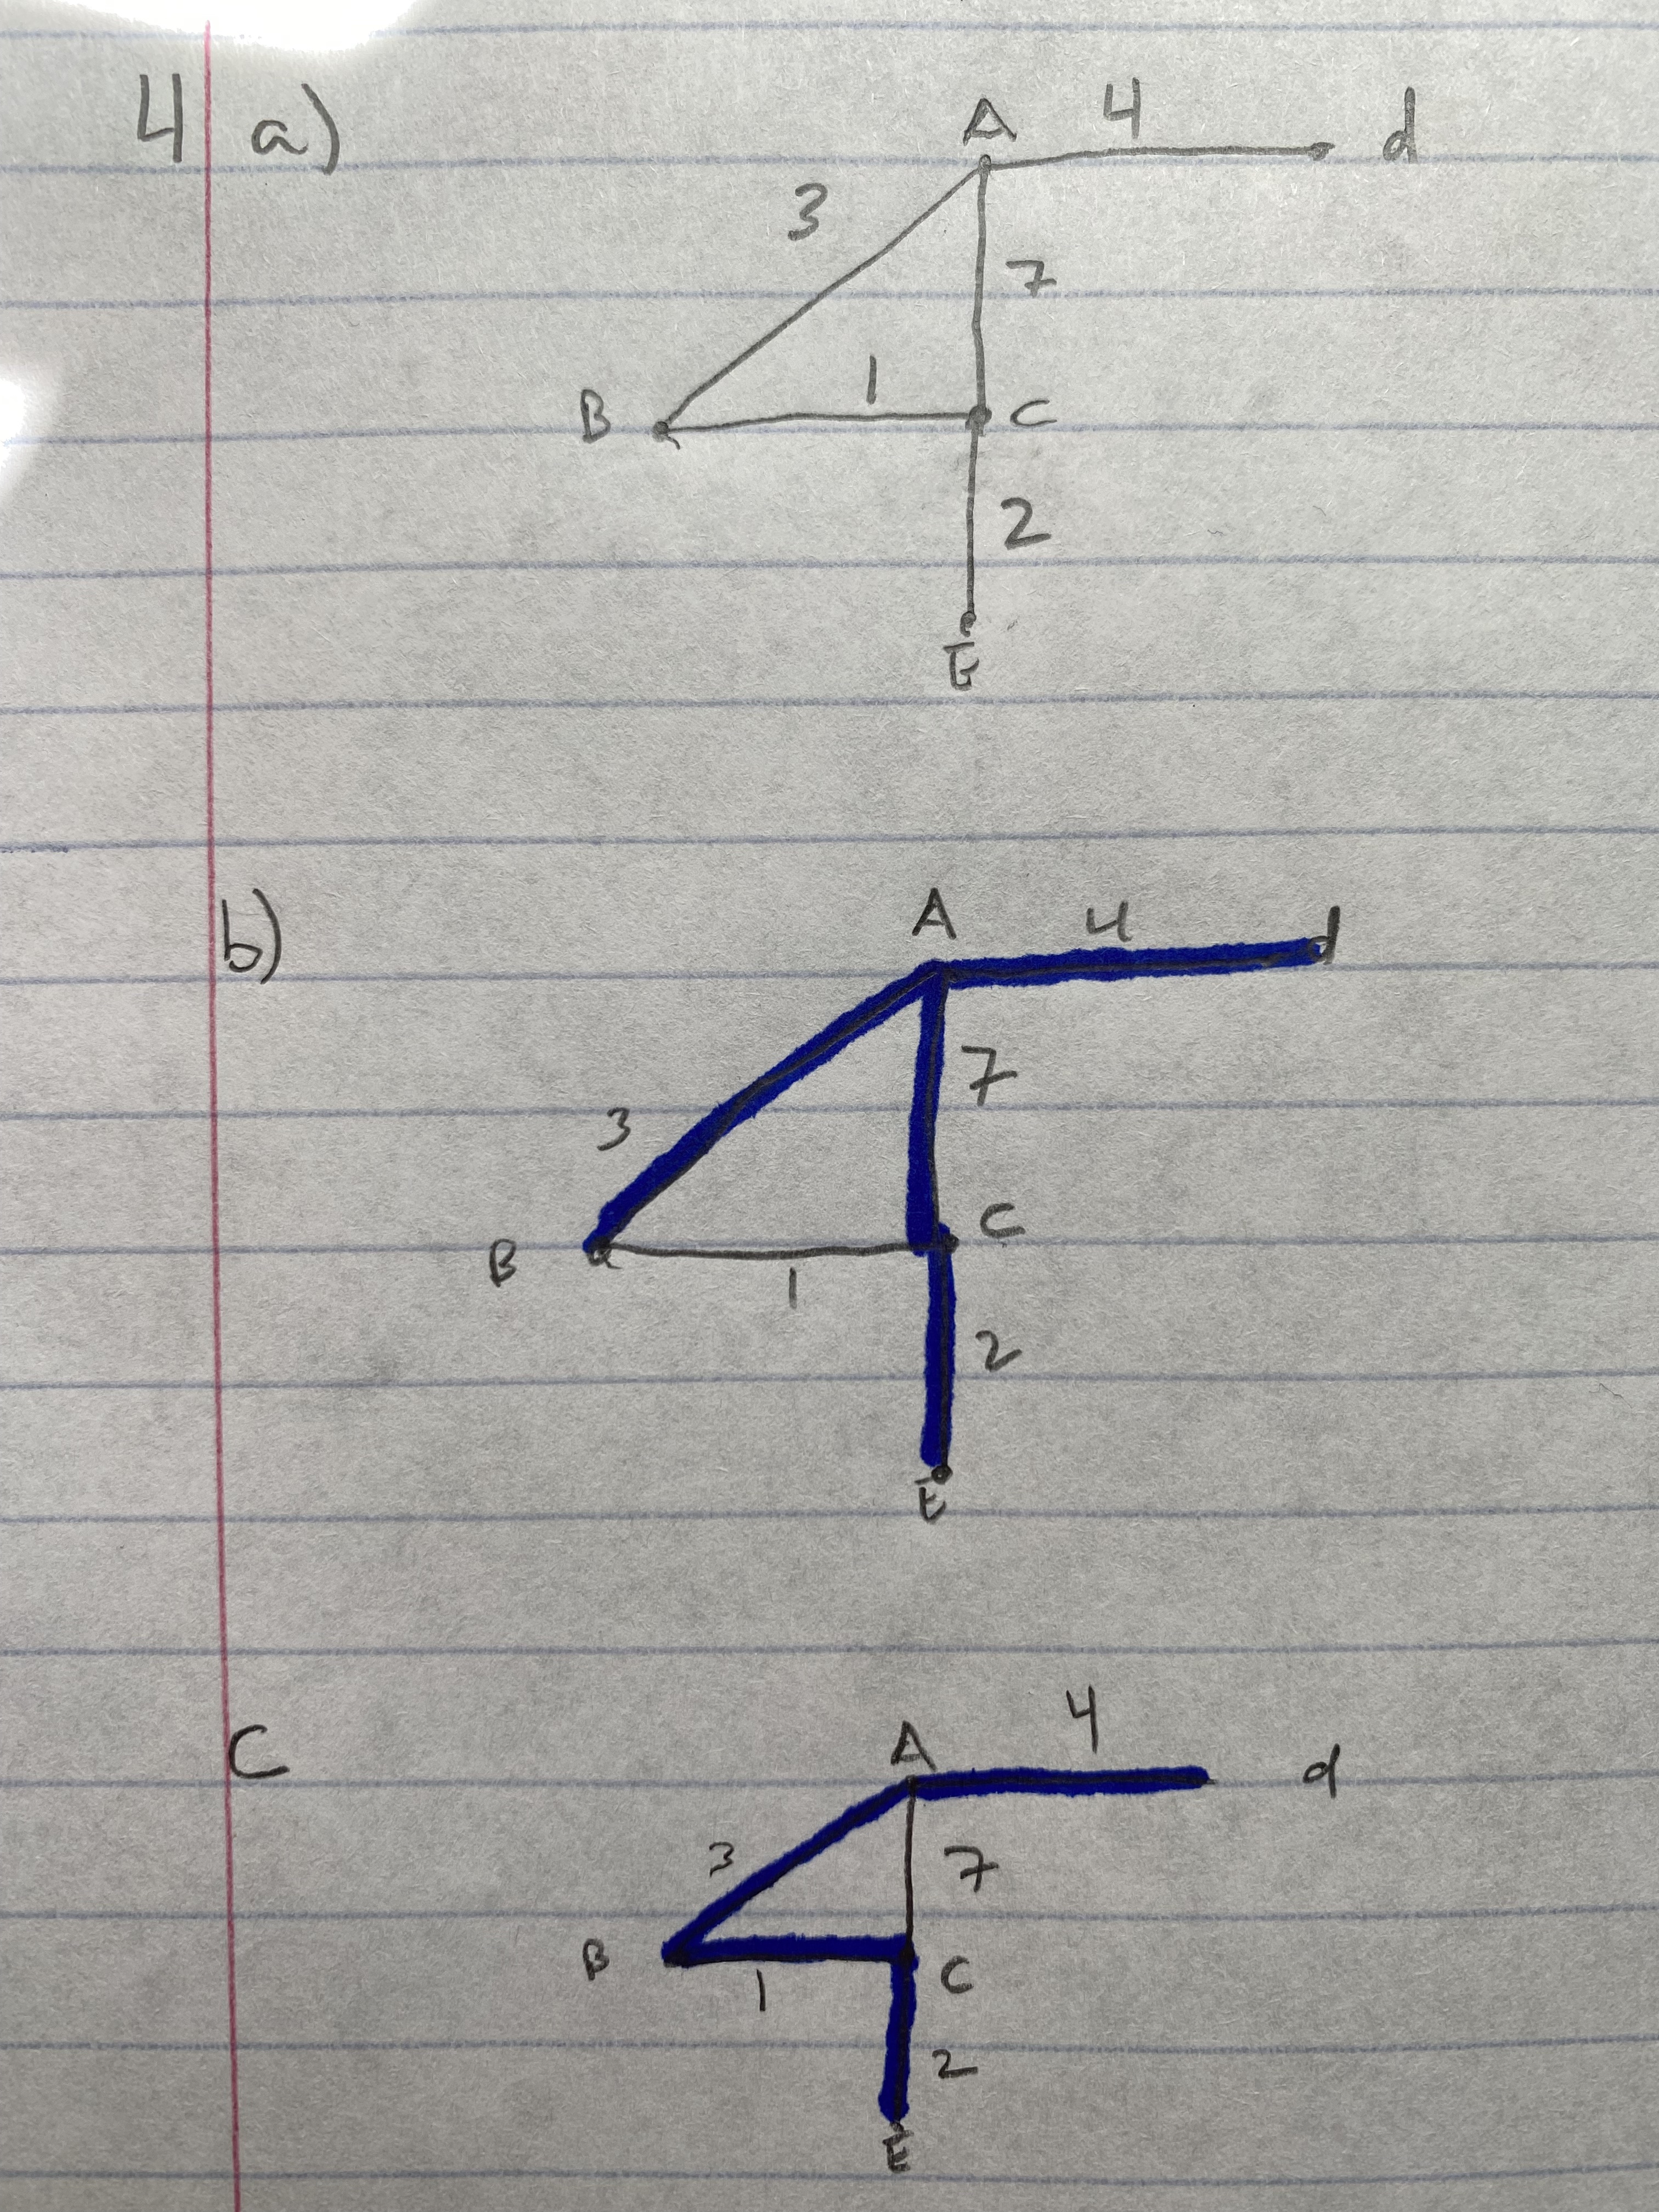 4 a)
A 4 d
3
7
B 1 C
2
E
b)
A 4 d
7
3
C
B 1
2
E
C
4
A d
3 7
B 1 C
2
E